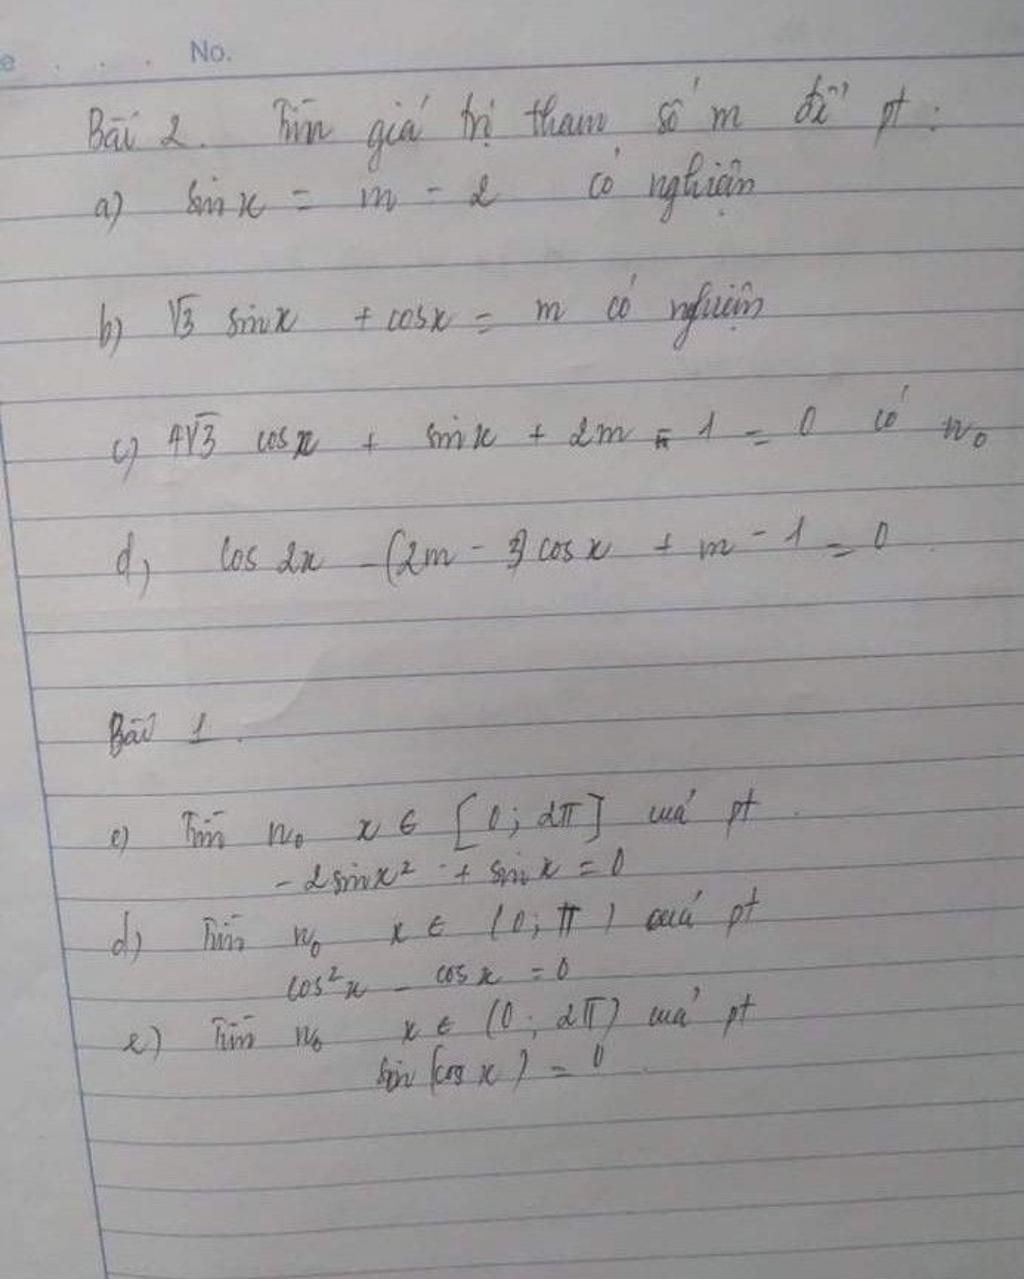 No.
Bài 2. Tìm giá trị tham số m để pt :
a) sin x = m - 2 có nghiệm
b) √3 sinx + cosx = m có nghiệm
c) 4√3 cosx + sinx + 2m - 1 = 0 có n₀
d) cos 2x - (2m - 3) cos x + m - 1 = 0
Bài 1.
c) Tìm n₀ x ∈ [0; 2π] của pt
- 2sinx² + sin x = 0
d) Tìm n₀ x ∈ (0; π) của pt
cos²x - cosx = 0
e) Tìm n₀ x ∈ (0; 2π) của pt
sin (cos x) = 0